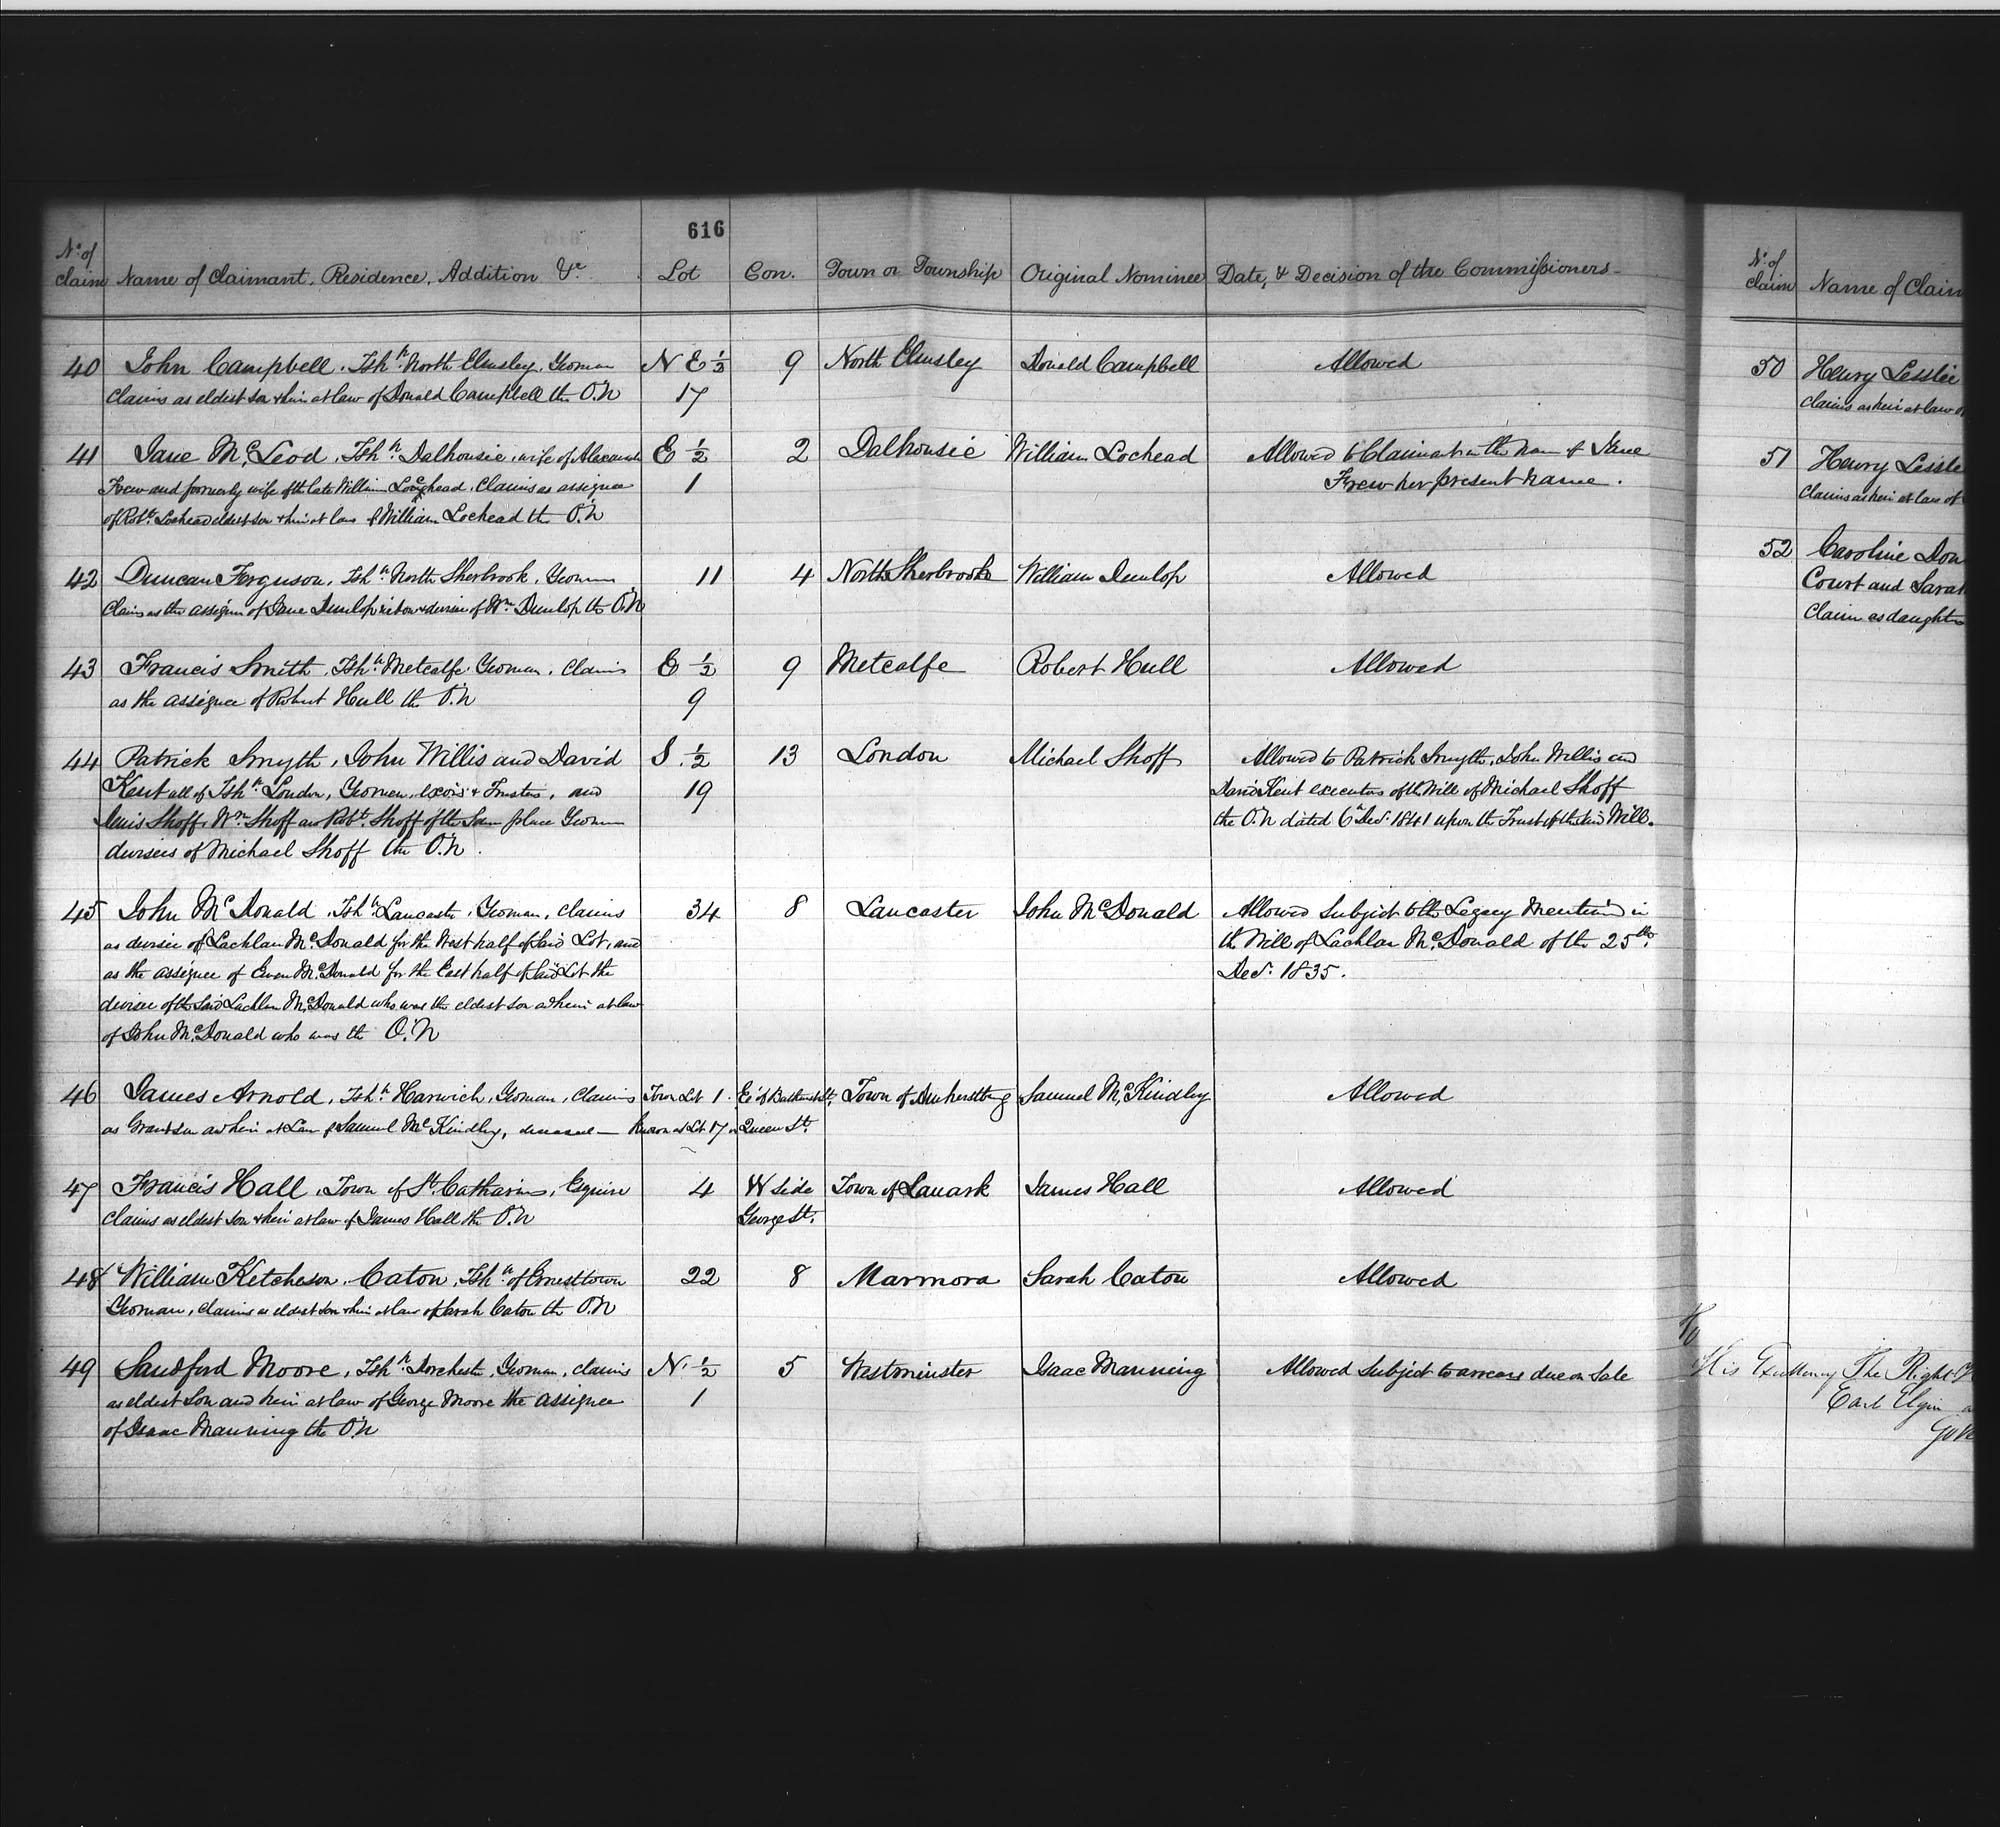 616
No. of claim Name of Claimant, Residence, Addition &c. Lot Con. Town or Township Original Nominee Date, & Decision of the Commissioners
40 John Campbell, Tsh'p. North Elmsley, Yeoman N E ½ 9 North Elmsley Donald Campbell Allowed
claims as eldest son & heir at law of Donald Campbell the O.N 17
41 Jane McLeod, Tsh'p. Dalhousie, wife of Alexander E ½ 2 Dalhousie William Lochead Allowed to Claimant in the name of Jane
Frew and formerly wife of the late William Lochead, Claims as assignee 1 Frew her present name.
of Robt. Lochead eldest son & heir at law of William Lochead the O.N
42 Duncan Ferguson, Tsh'p. North Sherbrook, Yeoman 11 4 North Sherbrook William Dunlop Allowed
Claims as the assignee of Jane Dunlop & devisee of Wm. Dunlop the O.N
43 Francis Smith, Tsh'p. Metcalfe, Yeoman, Claims E ½ 9 Metcalfe Robert Hull Allowed
as the assignee of Robert Hull the O.N 9
44 Patrick Smyth, John Willis and David S. ½ 13 London Michael Shoff Allowed to Patrick Smyth, John Willis and
Kent all of Tsh'p. London, Yeomen, exors & Trustees, and 19 David Kent executors of the Will of Michael Shoff
Lewis Shoff, Wm. Shoff and Robt. Shoff of the same place Yeomen the O.N dated 6th Dec. 1841 upon the Trust of the said Will.
devisees of Michael Shoff the O.N.
45 John McDonald, Tsh'p. Lancaster, Yeoman, claims 34 8 Lancaster John McDonald Allowed Subject to the Legacy mentioned in
as devisee of Lachlan McDonald for the West half of said Lot, and the Will of Lachlan McDonald of the 25th
as the assignee of Ewen McDonald for the East half of said Lot the Dec. 1835.
devisee of the said Lachlan McDonald who was the eldest son & heir at law
of John McDonald who was the O.N
46 James Arnold, Tsh'p. Harwich, Yeoman, Claims Town Lot 1. E. of Bathurst St. Town of Amherstburg Samuel McKindley Allowed
as Grandson and heir at Law of Samuel McKindley, deceased — known as Lot 17 on Queen St.
47 Francis Hall, Town of St. Catharines, Esquire 4 W side Town of Lanark James Hall Allowed
Claims as eldest son & heir at law of James Hall the O.N George St.
48 William Ketcheson Caton, Tsh'p. of Ernesttown 22 8 Marmora Sarah Caton Allowed
Yeoman, claims as eldest son & heir at law of Sarah Caton the O.N
49 Sandford Moore, Tsh'p. Dorchester, Yeoman, claims N. ½ 5 Westminster Isaac Manning Allowed Subject to arrears due on Sale
as eldest Son and heir at law of George Moore the assignee 1
of Isaac Manning the O.N
No. of claim Name of Claim
50 Henry Lesslie
claims as heir at law
51 Henry Lessl
Claims as heir at law of
52 Caroline Don
Court and Sarah
Claim as daught
His Excellency The Right
Earl Elgin
Gove